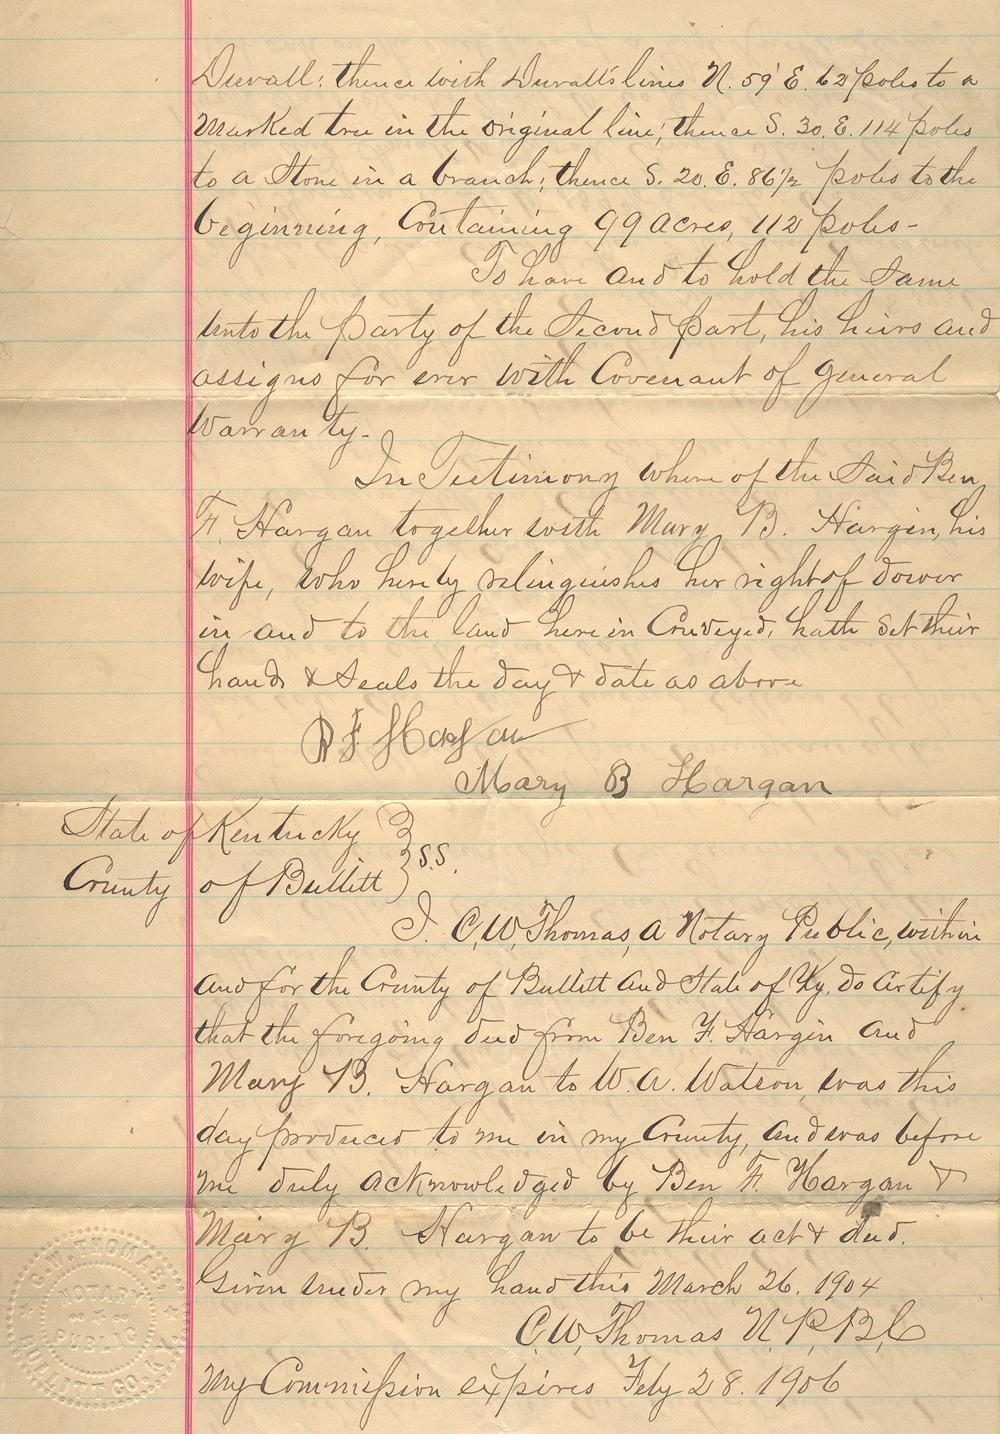 Duvall; thence with Duvall's lines N. 59 E. 62 poles to a
Marked tree in the original line; thence S. 30, E. 114 poles
to a Stone in a branch; thence S. 20. E. 86 1/2 poles to the
beginning, Containing 99 acres, 112 poles -
To have and to hold the Same
unto the party of the Second part, his heirs and
assigns for ever with Covenant of general
Warranty.-
In Testimony where of the Said Ben
F. Hargan together with Mary B. Hargin, his
wife, who hereby relinguishes her right of dower
in and to the land here in Conveyed, hath set their
hands & Seals the day & date as above
B F Hargan
Mary B Hargan
State of Kentucky
County of Bullitt } S.S.
I. C. W. Thomas, a Notary Public, within
and for the County of Bullitt and State of Ky, do certify
that the foregoing deed from Ben F. Hargin and
Mary B. Hargan to W. A. Watson, was this
day produced to me in my County, and was before
me duly acknowledged by Ben F. Hargan &
Mary B. Hargan to be their act & deed.
Given under my hand this March 26. 1904
C. W. Thomas N. P. B. C
My Commission expires Feby 28. 1906
C. W. THOMAS,
NOTARY
PUBLIC
BULLITT CO. KY.